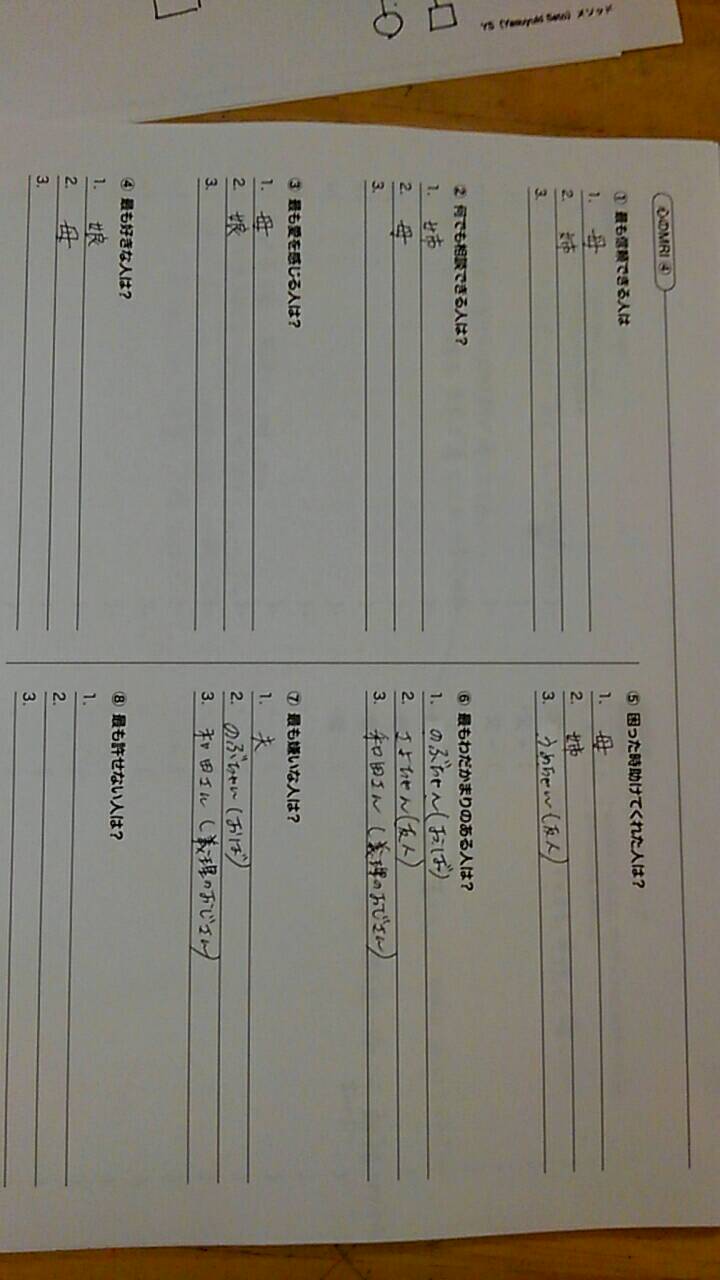 YS (Yasuyuki Sato) メソッド
心のMRI ④
① 最も信頼できる人は
1. 母
2. 姉
3.
② 何でも相談できる人は?
1. 姉
2. 母
3.
③ 最も愛を感じる人は?
1. 母
2. 娘
3.
④ 最も好きな人は?
1. 娘
2. 母
3.
⑤ 困った時助けてくれた人は?
1. 母
2. 姉
3. うめちゃん(友人)
⑥ 最もわだかまりのある人は?
1. のぶちゃん(おば)
2. さよちゃん(友人)
3. 和田さん(義理のおじさん)
⑦ 最も嫌いな人は?
1. 夫
2. のぶちゃん(おば)
3. 和田さん(義理のおじさん)
⑧ 最も許せない人は?
1.
2.
3.